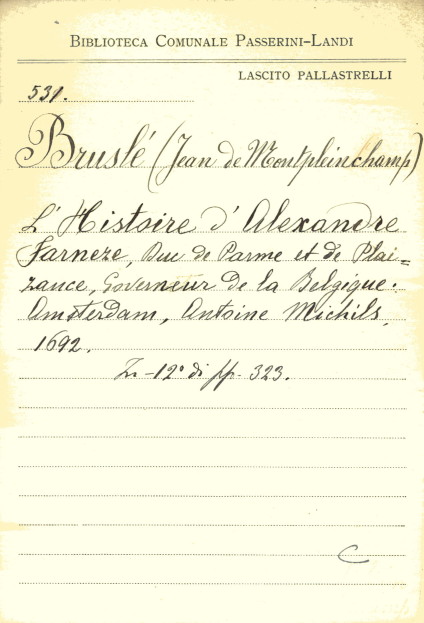 BIBLIOTECA COMUNALE PASSERINI-LANDI
LASCITO PALLASTRELLI
531.
Bruslé (Jean de Montpleinchamp)
L'Histoire d'Alexandre
Farneze, Duc de Parme et de Plai=
zance, Governeur de la Belgique.
Amsterdam, Antoine Michils,
1692.
In-12° di pp. 323.
C